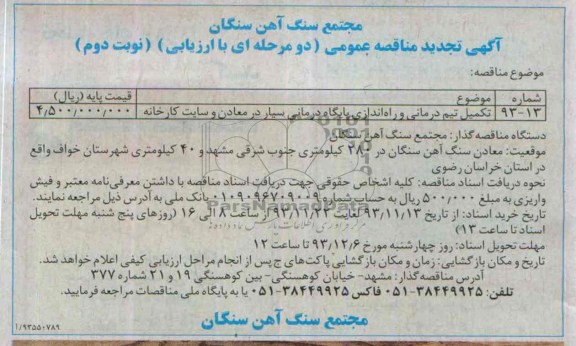 مجتمع سنگ آهن سنگان
آگهی تجدید مناقصه عمومی (دو مرحله ای با ارزیابی) (نوبت دوم)
موضوع مناقصه:
شماره موضوع قیمت پایه (ریال)
۹۳-۱۳ تکمیل تیم درمانی و راه‌اندازی پایگاه درمانی سیار در معادن و سایت کارخانه ۴,۵۰۰,۰۰۰,۰۰۰
دستگاه مناقصه گذار: مجتمع سنگ آهن سنگان
موقعیت: معادن سنگ آهن سنگان در ۲۸۰ کیلومتری جنوب شرقی مشهد و ۴۰ کیلومتری شهرستان خواف واقع
در استان خراسان رضوی
نحوه دریافت اسناد مناقصه: کلیه اشخاص حقوقی جهت دریافت اسناد مناقصه با داشتن معرفی‌نامه معتبر و فیش
واریزی به مبلغ ۵۰۰,۰۰۰ ریال به حساب شماره ۰۱۰۹۰۹۶۷۰۹۰۰۹ بانک ملی به آدرس ذیل مراجعه نمایند.
تاریخ خرید اسناد: از تاریخ ۹۳/۱۱/۱۳ لغایت ۹۳/۱۱/۲۳ از ساعت ۸ الی ۱۶ (روزهای پنج شنبه مهلت تحویل
اسناد تا ساعت ۱۳)
مهلت تحویل اسناد: روز چهارشنبه مورخ ۹۳/۱۲/۶ تا ساعت ۱۲
تاریخ و مکان بازگشایی: زمان و مکان بازگشایی پاکت‌های ج پس از انجام مراحل ارزیابی کیفی اعلام خواهد شد.
آدرس مناقصه گذار: مشهد- خیابان کوهسنگی- بین کوهسنگی ۱۹ و ۲۱ شماره ۳۷۷
تلفن: ۳۸۴۴۹۹۳۵-۰۵۱ فاکس ۳۸۴۴۹۹۲۵-۰۵۱ یا به پایگاه ملی مناقصات مراجعه فرمایید.
مجتمع سنگ آهن سنگان
۱/۹۳۵۵۰۷۸۹
ParsNamadData